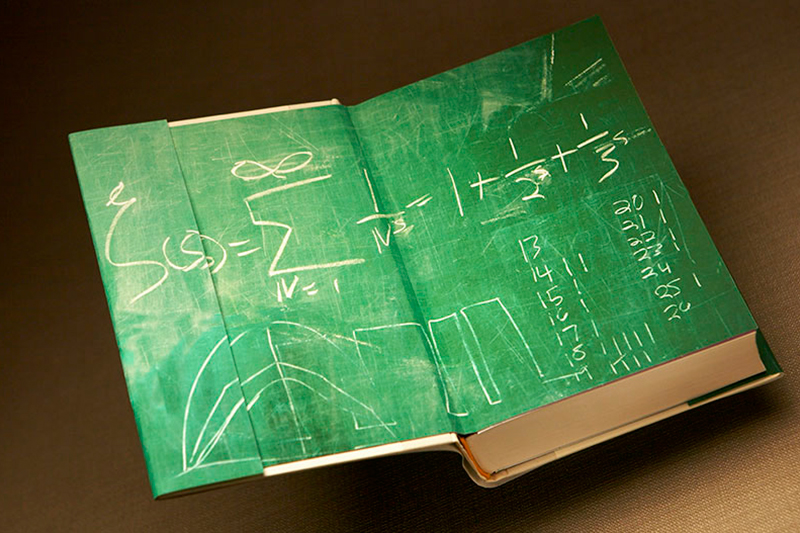 ζ(s) = ∞ Σ N=1 1/Nˢ = 1 + 1/2ˢ + 1/3ˢ
13
14 11
15 1
16 1
17 1
18 1
20 1
21
22 1
23
24
25 1
26